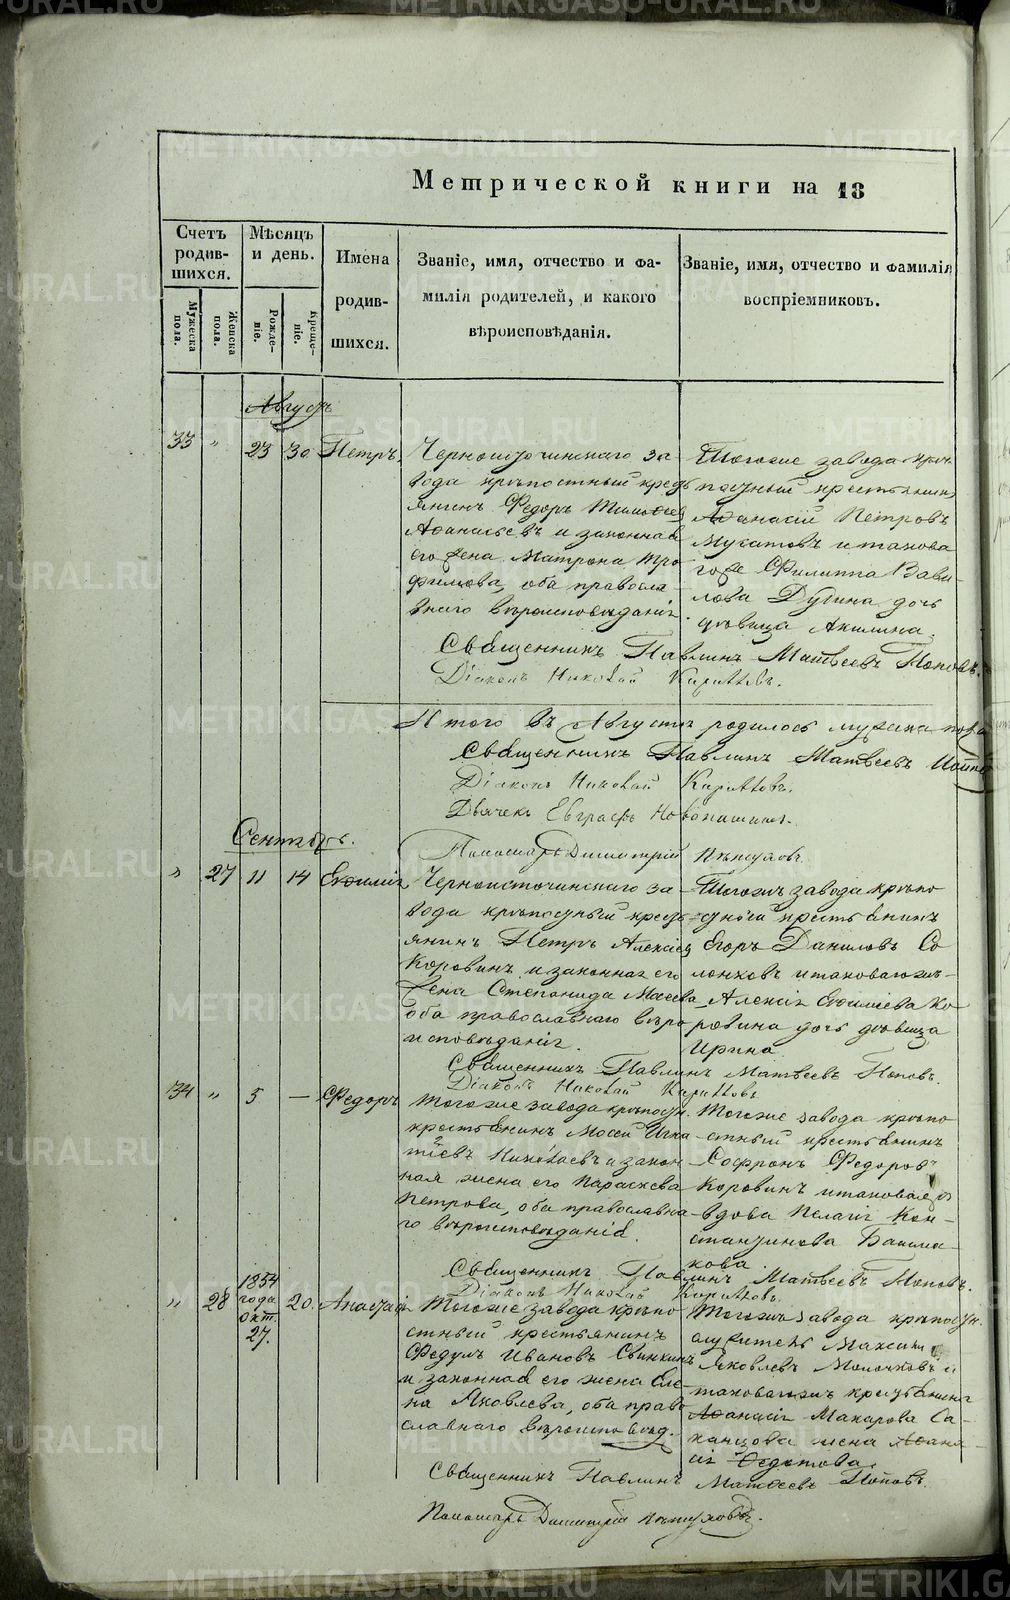 METRIKI.GASO-URAL.RU
Метрической книги на 18
Счетъ родив-шихся.
Мѣсяцъ и день.
Имена родив-шихся.
Званіе, имя, отчество и фа-
милія родителей, и какого
вѣроисповѣданія.
Званіе, имя, отчество и фамилія
воспріемниковъ.
Мужеска пола.
Женска пола.
Рожде-ніе.
Креще-ніе.
Августъ
33 " 23 30 Петръ,
Черноисточинскаго за
вода крѣпостный кресть
янинъ Федоръ
Аѳанасьевъ и законная
его жена Матрона Тро
фимова, оба правосла
внаго вѣроисповѣданія.
Тогоже завода крѣ
постный крестьянинъ
Аѳанасій Петровъ
Мусатовъ и такова
гоже Филиппа Вави-
лова Дугина дочь
дѣвица Акилина.
Священникъ Павлинъ Матвеевъ Поповъ.
Діаконъ Николай
Итого въ Августѣ родилось мужска пола
Священникъ Павлинъ Матвеевъ Поповъ
Діаконъ Николай
Дьячекъ Евграфъ
Пономарь Димитрій Пѣтуховъ.
Сентябрь.
" 27 11 14 Евѳимія
Черноисточинскаго за-
вода крѣпостный кресть
янинъ Петръ Алексѣев
Коровинъ и законная его
жена Степанида Масеева
оба православнаго вѣро
исповѣданія.
Тогожъ завода крѣпо
стной крестьянинъ
Егоръ Даниловъ Со
ломховъ и таковагожъ
Алексія Евѳиміева Ко
ровина дочь дѣвица
Ирина
Священникъ Павлинъ Матвеевъ Поповъ.
Діаконъ Николай
34 " 5 — Федоръ
Тогоже завода крѣпостн.
крестьянинъ Мосей Игна
тіевъ Николаевъ и закон
ная жена его Параскева
Петрова, оба православна
го вѣроисповѣданія.
Тогоже завода крѣпо
стный крестьянинъ
Софронъ Федоров
Коровинъ и таковая
вдова Пелагія Кон-
стантинова Башма-
кова.
Священникъ Павлинъ Матвеевъ Поповъ.
Діаконъ Николай
" 28 1854 года Окт. 27. 20. Анастасія
Тогоже завода крѣпо
стный крестьянинъ
Федулъ Ивановъ Свинкинъ
и законная его жена Еле
на Яковлева, оба право
славнаго вѣроисповѣд.
Тогожъ завода крѣпостн.
служитель Максим
Яковлевъ Молочковъ и
таковагожъ крестьянина
Аѳанасія Макарова Са
канцова жена Аѳана-
сія Ѳедотова.
Священникъ Павлинъ Матвеевъ Поповъ.
Пономарь Димитрій Пѣтуховъ.